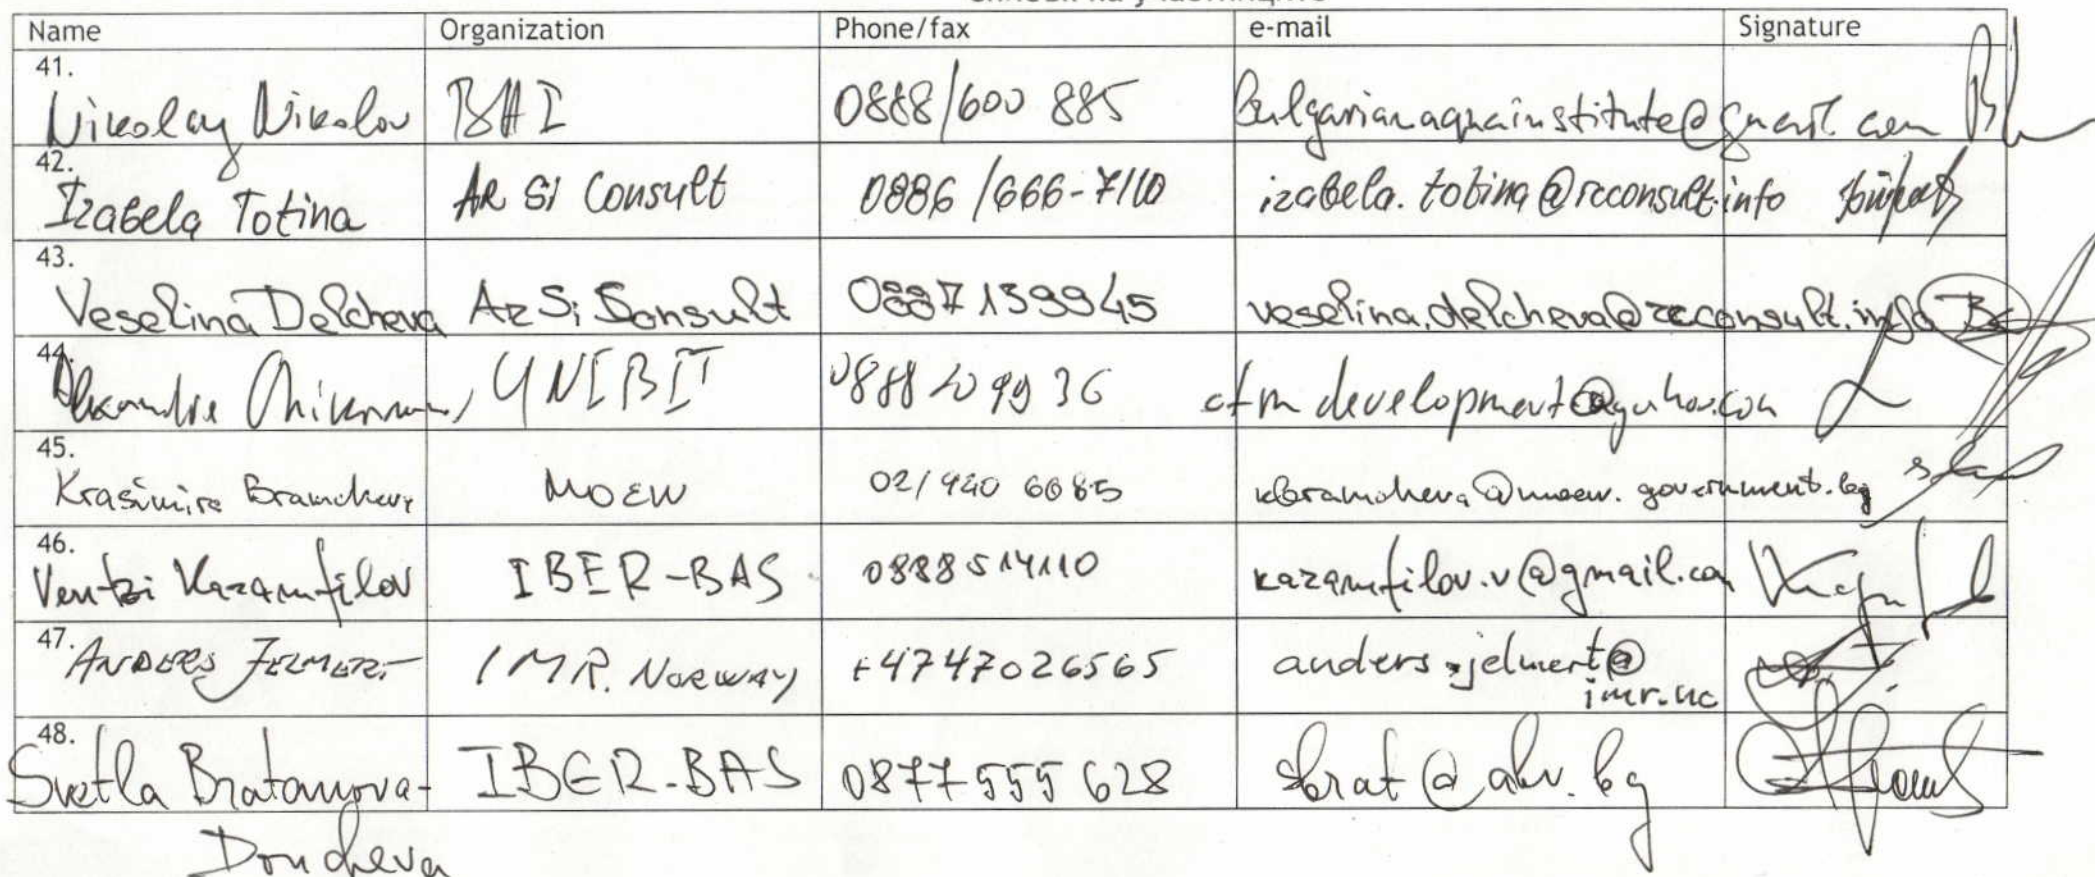 Name Organization Phone/fax e-mail Signature
41. Nikolay Nikolov BAI 0888/600 885 Bulgarianaquainstitute@gmail.com
42. Izabela Totina Ar Si Consult 0886/666-7110 izabela.totina@rcconsult.info
43. Veselina Delcheva Ar Si Consult 0887139945 veselina.delcheva@rcconsult.info
44. UNIBIT
45. Krasimira Bramcheva MOEW 02/940 6685 government.bg
46. Ventzi Karamfilov IBER-BAS 0888514110 karamfilov.v@gmail.com
47. ANDERS JELMERT IMR. NORWAY +4747026565 anders.jelmert@
imr.no
48. Svetla Bratanova- IBER-BAS 0877555628 sbrat@abv.bg
Doncheva